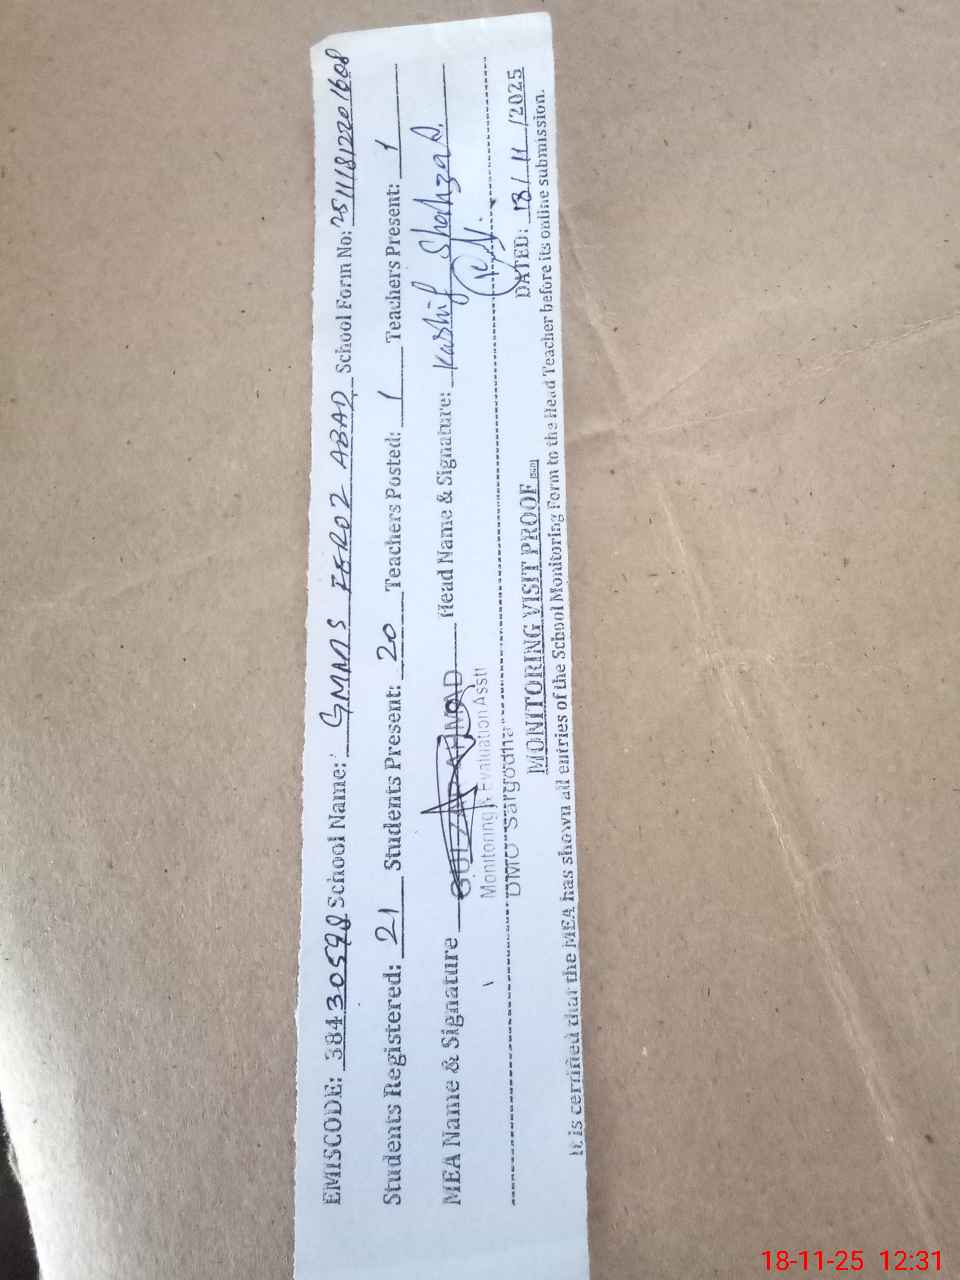 EMISCODE: 38430598 School Name: GMMS FEROZ ABAD School Form No: 251118122201608
Students Registered: 21 Students Present: 20 Teachers Posted: 1 Teachers Present: 1
MEA Name & Signature GULZAR AHMAD Head Name & Signature: Kashif Shahzad.
Monitoring & Evaluation Asstt
DMO Sargodha
DATED: 18/11/2025
MONITORING VISIT PROOF
It is certified that the MEA has shown all entries of the School Monitoring Form to the Head Teacher before its online submission.
18-11-25 12:31